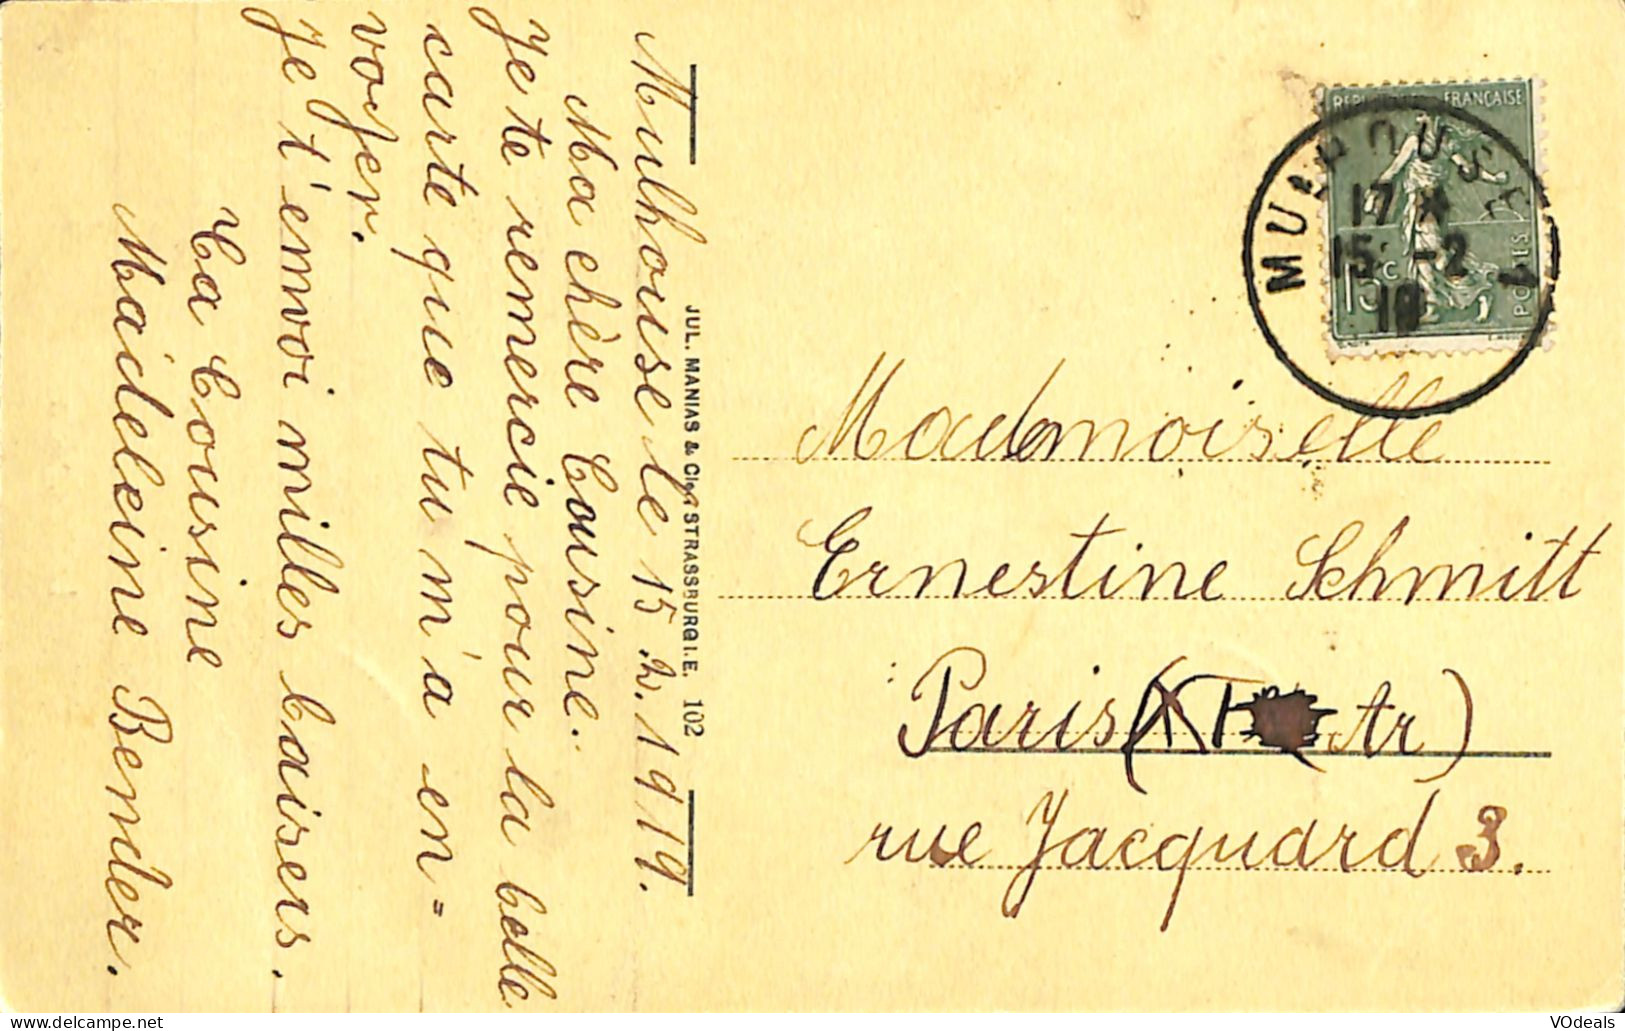 Mulhouse le 15.2.1919.
Ma chère Cousine.
Je te remercie pour la belle
carte que tu m'a en=
vojer.
Je t'envoi milles baisers.
Ta Cousine
Madeleine Bender.
JUL. MANIAS & Cie, STRASSBURG I. E. 102
REPUBLIQUE FRANÇAISE
15c
POSTES
MULHOUSE 1
17 *
15. -2
19
Mademoiselle
Ernestine Schmitt
Paris (XI Ar)
rue Jacquard 3.
VOdeals